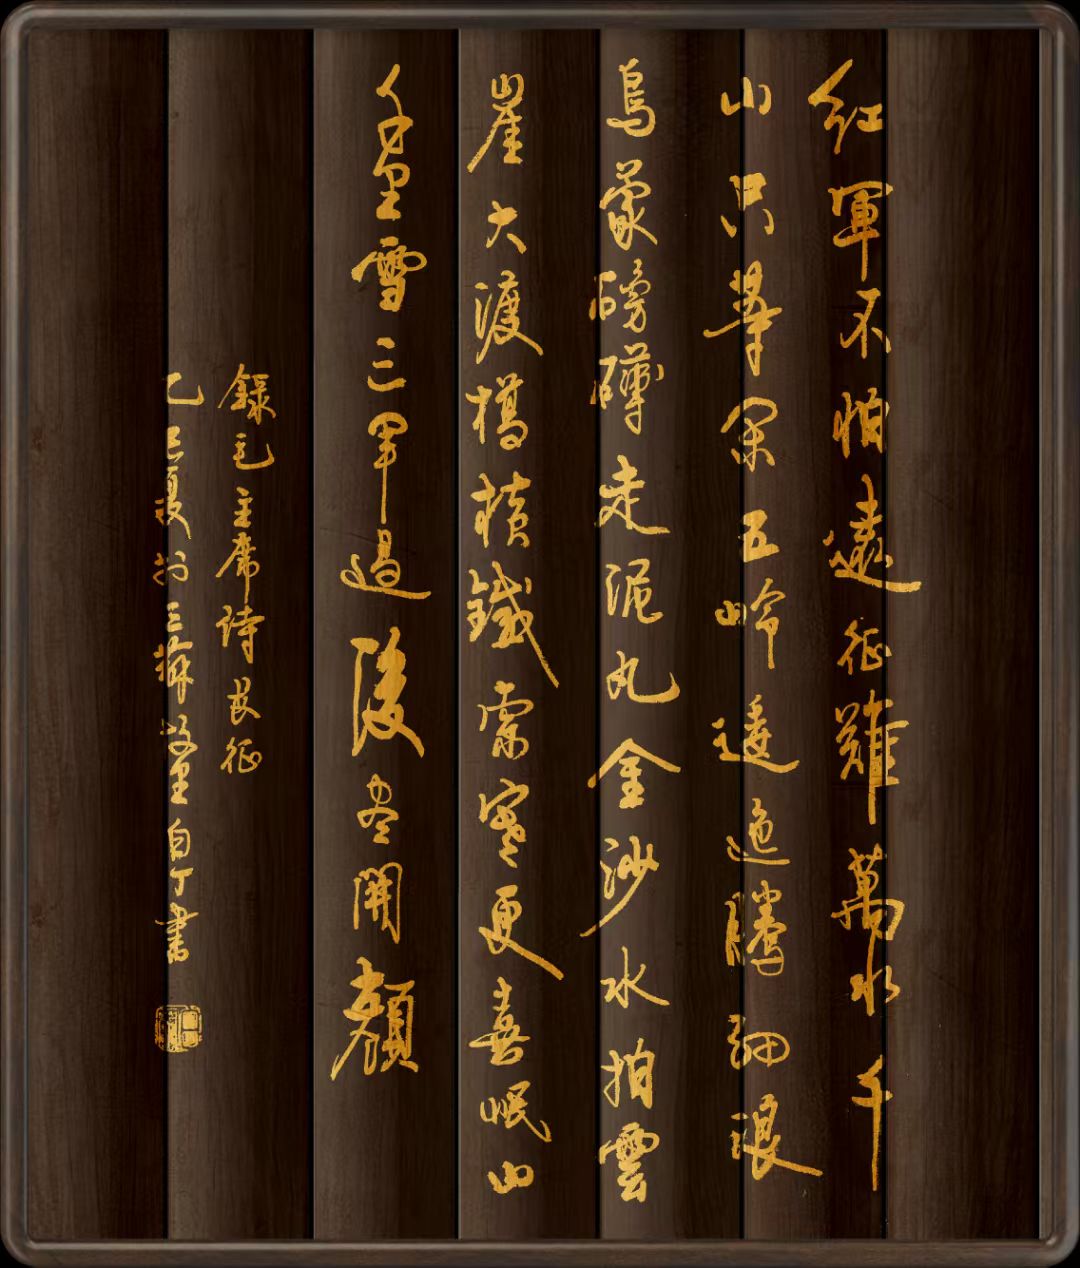 紅軍不怕遠征難萬水千
山只等閑五岭逶迤騰細浪
烏蒙磅礴走泥丸金沙水拍雲
崖大渡橋橫鐵索寒更喜岷山
千里雪三軍過後盡開顏
錄毛主席詩長征
乙巳夏於三故里自丁書